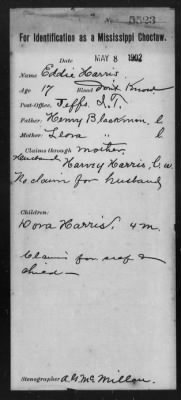 No. 5523
For Identification as a Mississippi Choctaw.
Date MAY 8 1902
Name Eddie Harris.
Age 17 Blood Don't Know
Post-Office, Jeffs, I.T.
Father: Henry Blackmon, C
Mother: Leora " C
Claims through mother.
Husband, Harvey Harris, C.W.
No claim for husband
Children:
Dora Harris, 4 m.
Claims for self &
child —
Stenographer A.G. McMillan.